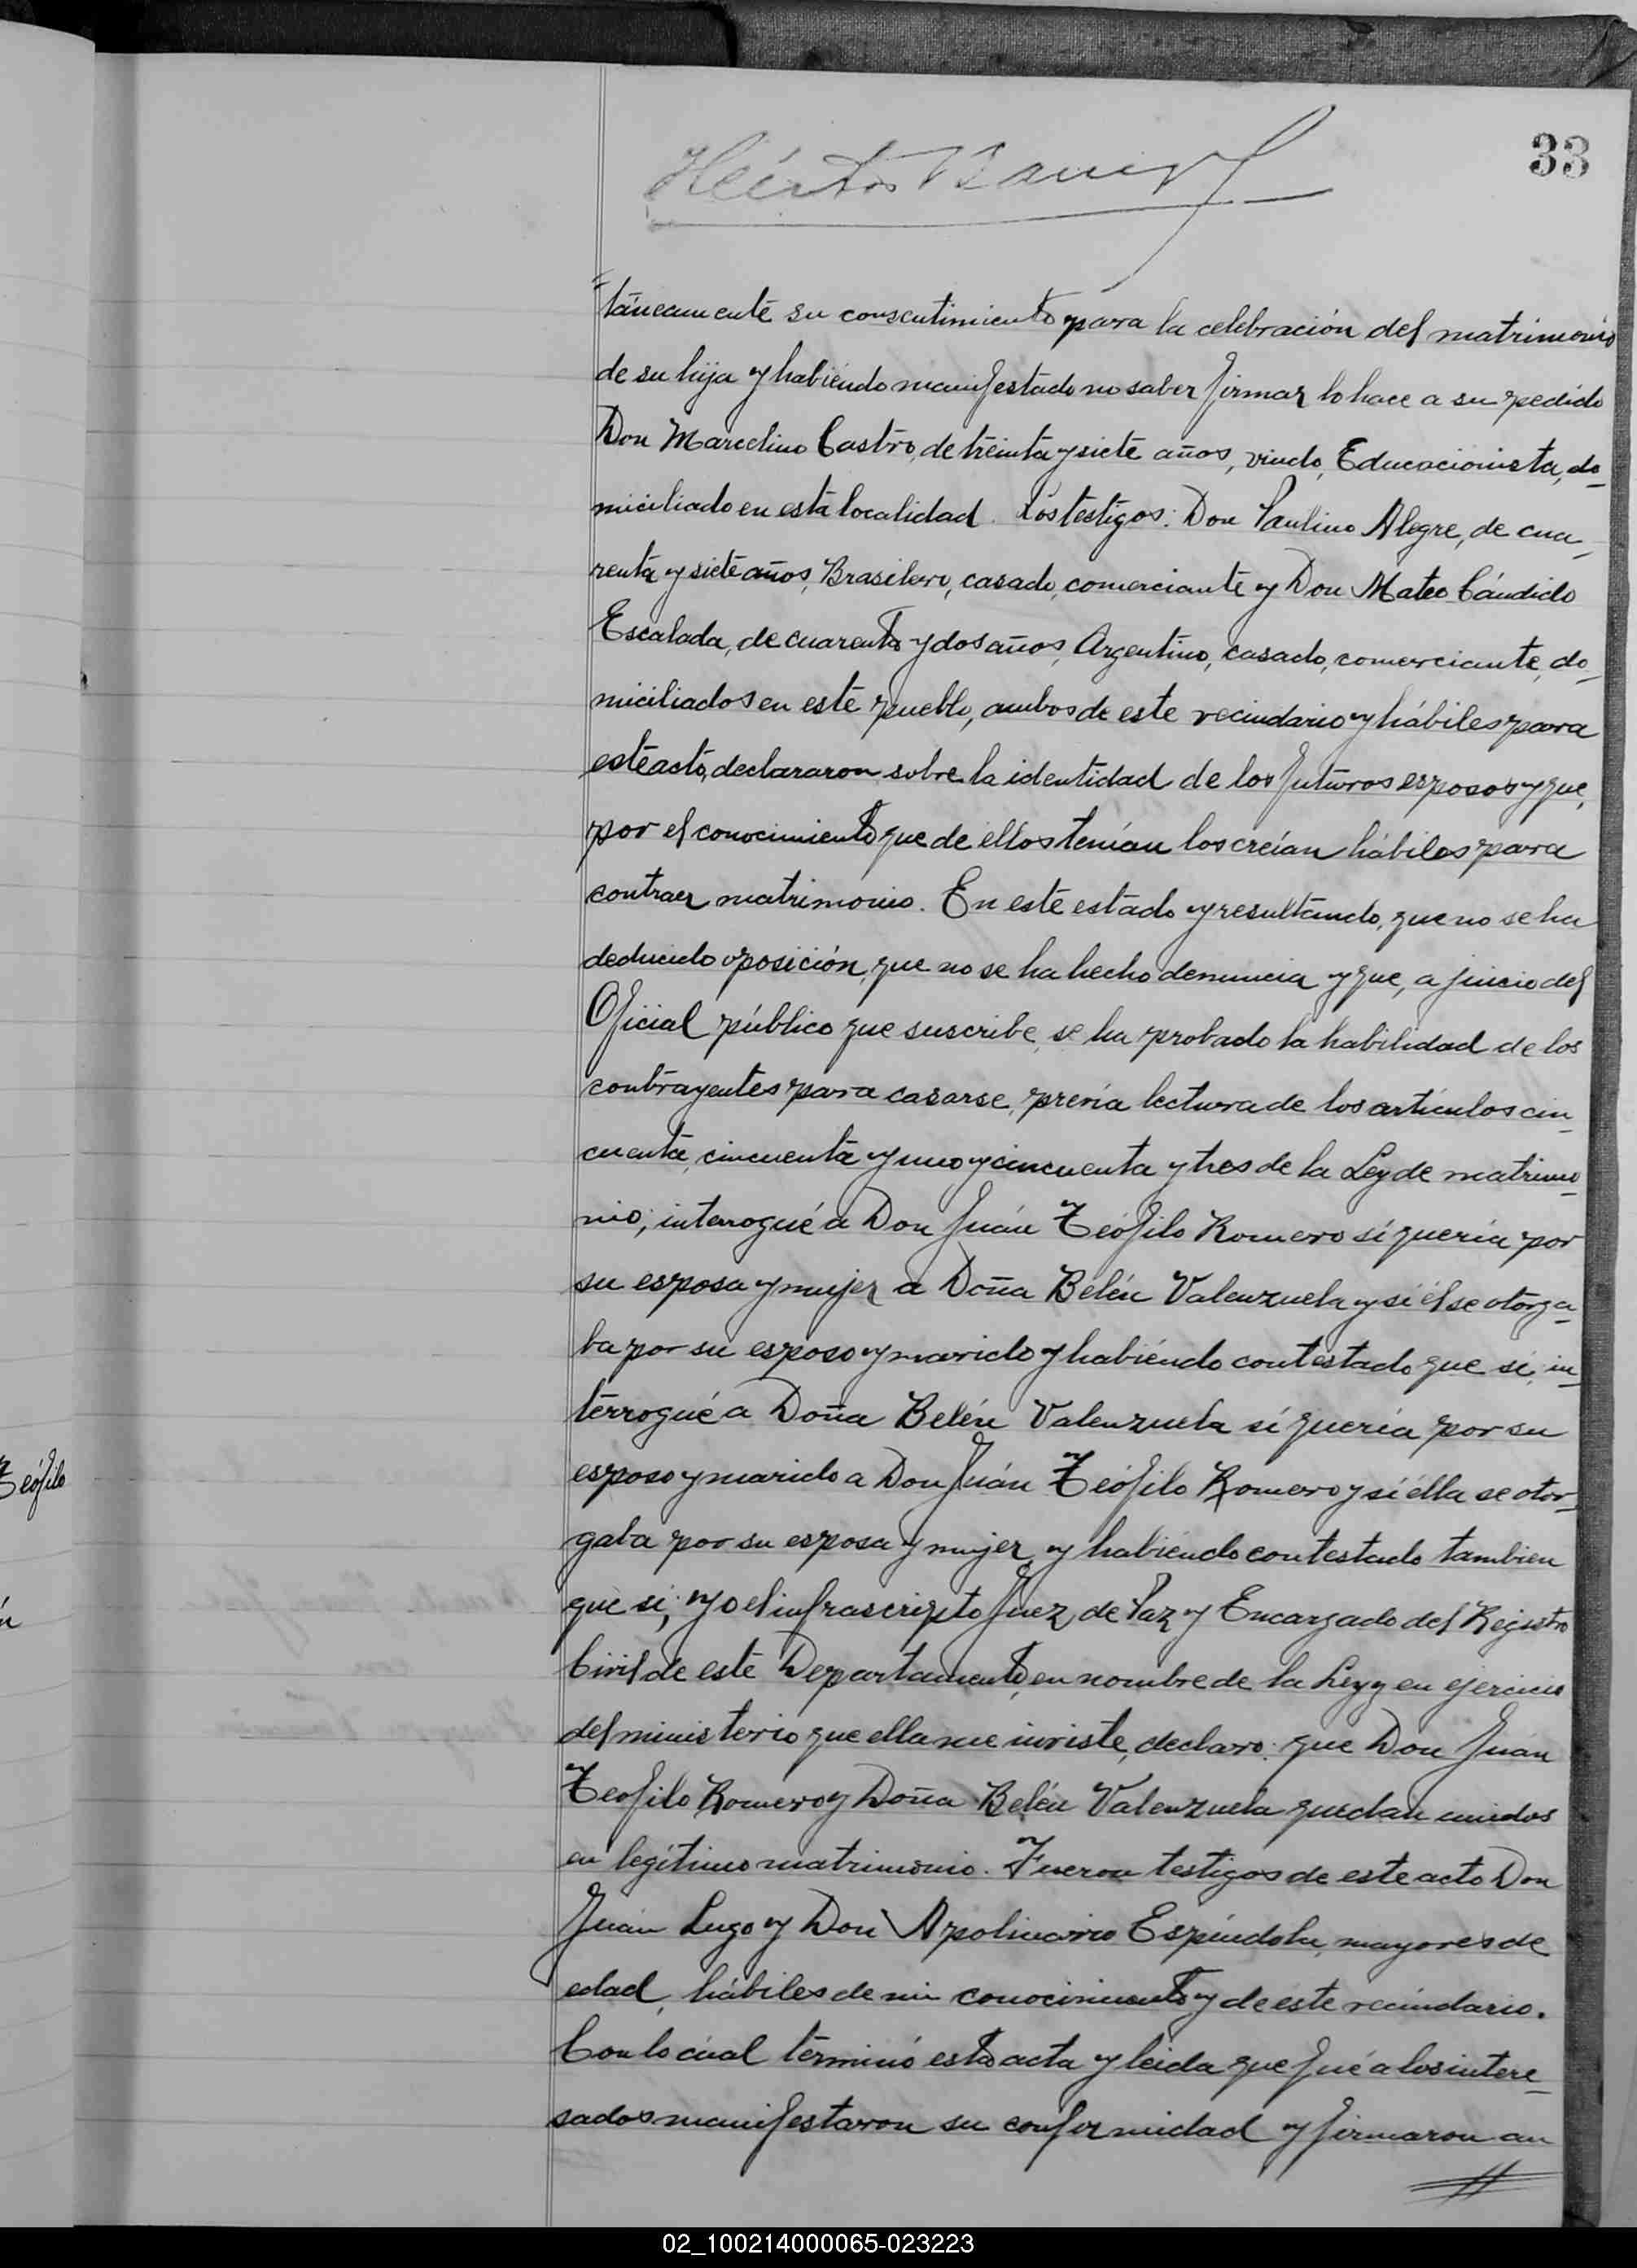 33
Héctor
táneamente su consentimiento para la celebración del matrimonio
de su hija y habiéndo manifestado no saber firmar lo hace a su pedido
Don Marcelino Castro, de treinta y siete años, viudo, Educacionista, do-
miciliado en esta localidad. Los testigos: Don Paulino Alegre, de cua-
renta y siete años, Brasilero, casado, comerciante y Don Mateo Cándido
Escalada, de cuarenta y dos años, Argentino, casado, comerciante, do-
miciliados en este pueblo, ambos de este vecindario y hábiles para
este acto, declararon sobre la identidad de los futuros esposos y que,
por el conocimiento que de ellos tenían los creían hábiles para
contraer matrimonio. En este estado y resultando, que no se ha
deducido oposición, que no se ha hecho denuncia y que, a juicio del
Oficial público que suscribe, se ha probado la habilidad de los
contrayentes para casarse, prévia lectura de los artículos cin-
cuenta, cincuenta y uno y cincuenta y tres de la Ley de matrimo-
nio; interrogué a Don Juán Teófilo Romero sí quería por
su esposa y mujer a Doña Belén Valenzuela y sí él se otorga-
ba por su esposo y marido y habiéndo contestado que sí, in-
terrogué a Doña Belén Valenzuela sí quería por su
esposo y marido a Don Juán Teófilo Romero y sí élla se otor-
gaba por su esposa y mujer, y habiéndo contestado tambien
que sí; yo el infrascripto Juez de Paz y Encargado del Registro
Civil de este Departamento, en nombre de la Ley y en ejercicio
del ministerio que ella me inviste, declaro: que Don Juán
Teofilo Romero y Doña Belén Valenzuela quedan unidos
en legítimo matrimonio. Fueron testigos de este acto Don
Juán Lugo y Don Apolinario Espíndola, mayores de
edad, hábiles de mi conocimiento y de este vecindario.
Con lo cúal términó esta acta y leida que fué a los intere-
sados manifestaron su conformidad y firmaron an
Teófilo
02_100214000065-023223